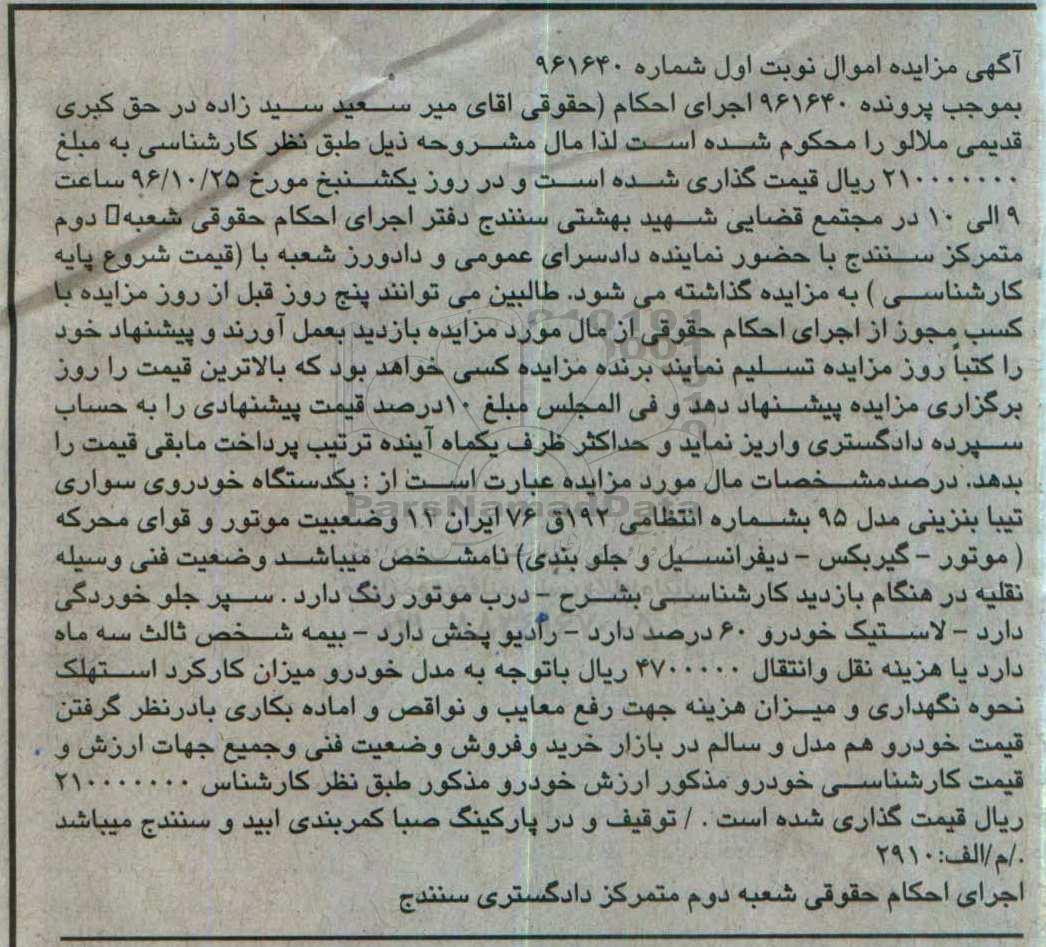 آگهی مزایده اموال نوبت اول شماره ۹۶۱۶۴۰
بموجب پرونده ۹۶۱۶۴۰ اجرای احکام (حقوقی اقای میر سعید سید زاده در حق کبری
قدیمی ملالو را محکوم شده است لذا مال مشروحه ذیل طبق نظر کارشناسی به مبلغ
۲۱۰۰۰۰۰۰۰ ریال قیمت گذاری شده است و در روز یکشنبخ مورخ ۹۶/۱۰/۲۵ ساعت
۹ الی ۱۰ در مجتمع قضایی شهید بهشتی سنندج دفتر اجرای احکام حقوقی شعبه دوم
متمرکز سنندج با حضور نماینده دادسرای عمومی و دادورز شعبه با (قیمت شروع پایه
کارشناسی ) به مزایده گذاشته می شود. طالبین می توانند پنج روز قبل از روز مزایده با
کسب مجوز از اجرای احکام حقوقی از مال مورد مزایده بازدید بعمل آورند و پیشنهاد خود
را کتباً روز مزایده تسلیم نمایند برنده مزایده کسی خواهد بود که بالاترین قیمت را روز
برگزاری مزایده پیشنهاد دهد و فی المجلس مبلغ ۱۰درصد قیمت پیشنهادی را به حساب
سپرده دادگستری واریز نماید و حداکثر ظرف یکماه آینده ترتیب پرداخت مابقی قیمت را
بدهد. درصدمشخصات مال مورد مزایده عبارت است از : یکدستگاه خودروی سواری
تیبا بنزینی مدل ۹۵ بشماره انتظامی ۱۹۲ق ۷۶ ایران ۱۱ وضعبیت موتور و قوای محرکه
( موتور - گیربکس - دیفرانسیل و جلو بندی) نامشخص میباشد وضعیت فنی وسیله
نقلیه در هنگام بازدید کارشناسی بشرح - درب موتور رنگ دارد . سپر جلو خوردگی
دارد - لاستیک خودرو ۶۰ درصد دارد - رادیو پخش دارد - بیمه شخص ثالث سه ماه
دارد یا هزینه نقل وانتقال ۴۷۰۰۰۰۰ ریال باتوجه به مدل خودرو میزان کارکرد استهلک
نحوه نگهداری و میزان هزینه جهت رفع معایب و نواقص و اماده بکاری بادرنظر گرفتن
قیمت خودرو هم مدل و سالم در بازار خرید وفروش وضعیت فنی وجمیع جهات ارزش و
قیمت کارشناسی خودرو مذکور ارزش خودرو مذکور طبق نظر کارشناس ۲۱۰۰۰۰۰۰۰
ریال قیمت گذاری شده است . / توقیف و در پارکینگ صبا کمربندی ابید و سنندج میباشد
./م/الف:۲۹۱۰
اجرای احکام حقوقی شعبه دوم متمرکز دادگستری سنندج
ParsNamadData